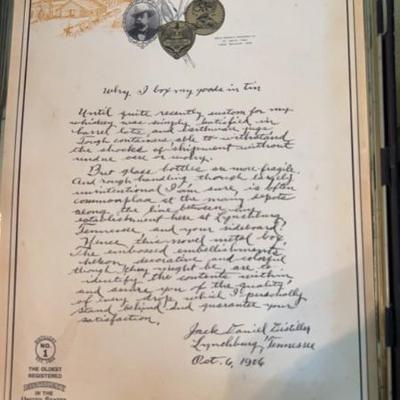 Why I box my goods in tin
Until quite recently custom for my
whiskey was simply satisfied in
barrel lots, and earthware jugs.
Tough containers able to withstand
the shocks of shipment without
undue care or worry.
But glass bottles are more fragile.
And rough handling though largely
unintentional I'm sure, is often
commonplace at the many depots
along the line between my
establishment here at Lynchburg
Tennessee and your sideboard?
Hence this novel metal box.
The embossed embellishments
hereon, decorative and colorful
though they might be, are to
identify the contents within
and assure you of the quality
of every drop, which I personally
stand behind and guarantee your
satisfaction.
Jack Daniel Distiller
Lynchburg, Tennessee
Oct. 6, 1906
NO.
1
THE OLDEST
REGISTERED
DISTILLERY
IN THE
UNITED STATES